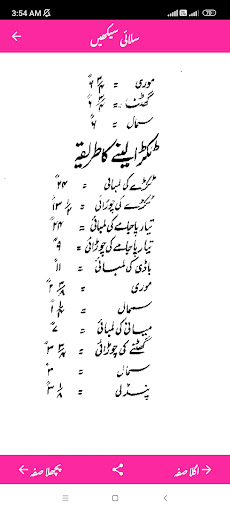 3:54 AM
78
سلائی سیکھیں
موری = ۶ ۳/۴"
گھٹنا = ۶ ۳/۴"
سمال = ۶"
ٹکڑا لینے کا طریقہ
ٹکڑے کی لمبائی = ۲۴"
ٹکڑے کی چوڑائی = ۱۳ ۱/۲"
تیار پاجامے کی لمبائی = ۲۴"
تیار پاجامے کی چوڑائی = ۹"
باڈی کی لمبائی = ۱۱"
موری = ۲ ۳/۴"
سمال = ۱ ۱/۲"
میانی کی لمبائی = ۷"
گھٹنے کی چوڑائی = ۳ ۳/۴"
سمال = ۳"
پنڈلی = ۳ ۱/۸"
اگلا صفہ
پچھلا صفہ